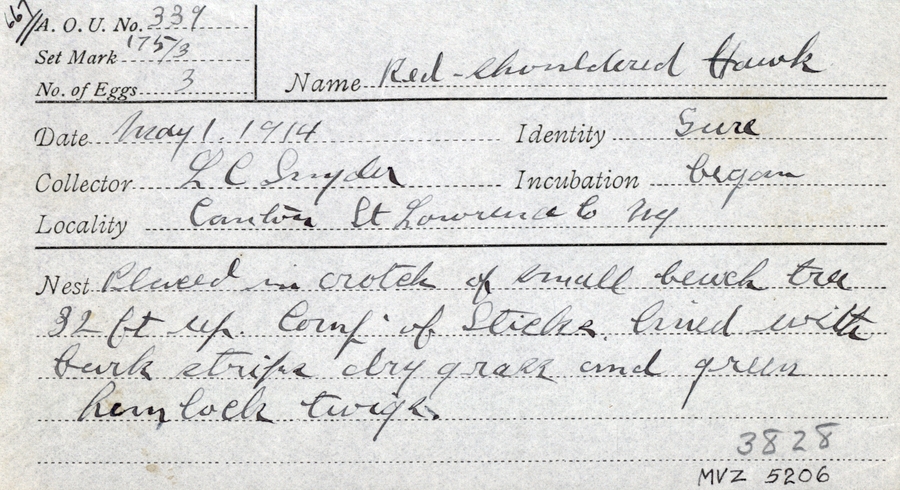 667
A. O. U. No. 339
Set Mark 175/3
No. of Eggs 3
Name Red-shouldered Hawk
Date May 1. 1914
Identity Sure
Collector L C Snyder
Incubation began
Locality Canton St Lawrence Co NY
Nest Placed in crotch of small beech tree
32 ft up. Comp. of Sticks. lined with
bark strips dry grass and green
hemlock twigs.
3828
MVZ 5206